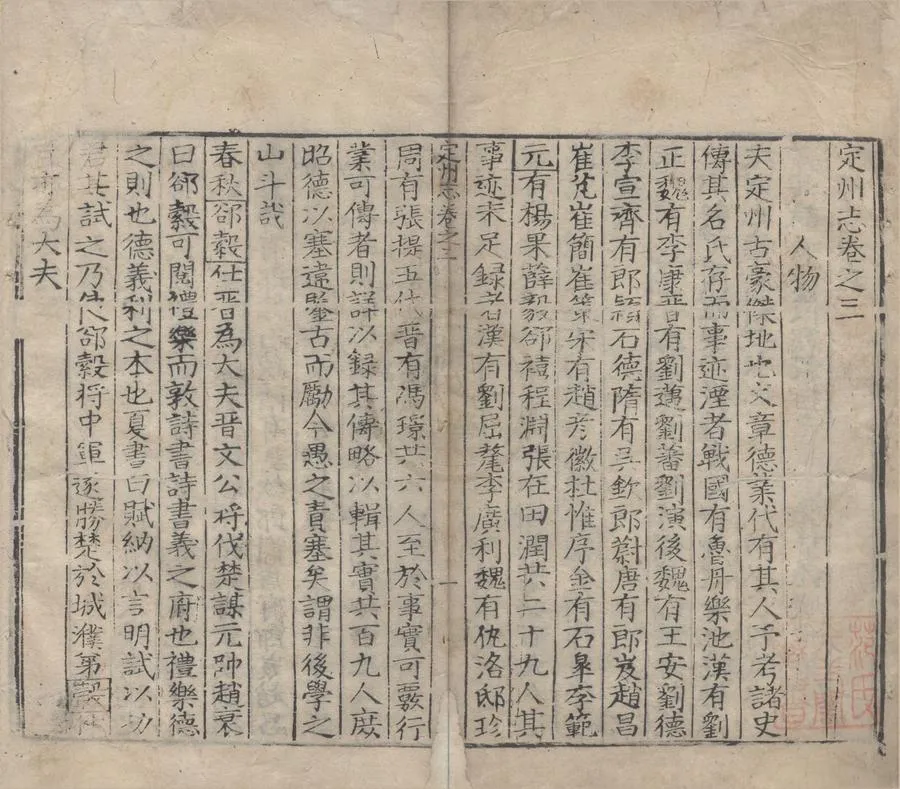 定州志卷之三
人物
夫定州古豪傑地也文章德業代有其人予考諸史
傳其名氏存而事迹湮者戰國有魯丹樂池漢有劉
正魏有李康晉有劉邁劉蕃劉演後魏有王安劉德
李宣齊有郎穎石德隋有吳欽郎蔚唐有郎岌趙昌
崔芃崔簡崔策宋有趙彥徽杜惟序金有石皐李範
元有楊果薛毅郤禧程淵張在田潤共二十九人其
事迹未足錄者漢有劉屈氂李廣利魏有仇洛邸珍
定州志卷之三
一
周有張提五代晉有馮璟共六人至於事實可覈行
業可傳者則詳以録其傳略以輯其實共百九人庶
昭德以塞違鑒古而勵今愚之責塞矣謂非後學之
山斗哉
春秋郤縠仕晉為大夫晉文公将伐楚謀元帥趙衰
曰郤縠可閱禮樂而敦詩書詩書義之府也禮樂德
之則也德義利之本也夏書曰賦納以言明試以功
君其試之乃使郤縠将中軍遂勝楚於城濮弟
為大夫